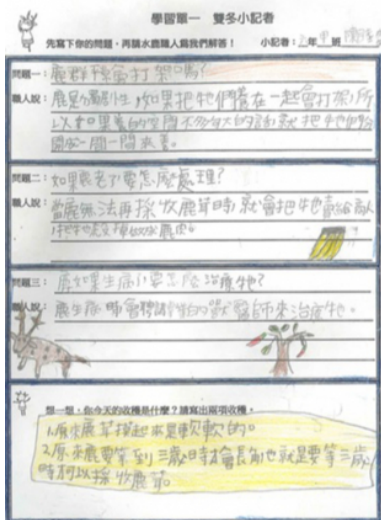 學習單一 雙冬小記者
先寫下你的問題，再請水鹿職人為我們解答！ 小記者：年 班
問題一：鹿群會打架嗎？
職人說：鹿是如果把牠們在一起會打架，所
以如果養的空間不夠大的話就把牠們分
開成一間一間來養。
問題二：如果鹿老了要怎麼處理？
職人說：當鹿無法再採收鹿茸時，就會把牠賣給商人
把牠做成鹿肉。
問題三：鹿如果生病了要怎麼治療牠？
職人說：鹿生病時會的獸醫師來治療牠。
想一想，你今天的收穫是什麼？請寫出兩項收穫。
1.原來鹿茸摸起來是軟軟的。
2.原來鹿要等到三歲時才會長角也就是要等三歲
時才可以採收鹿茸。